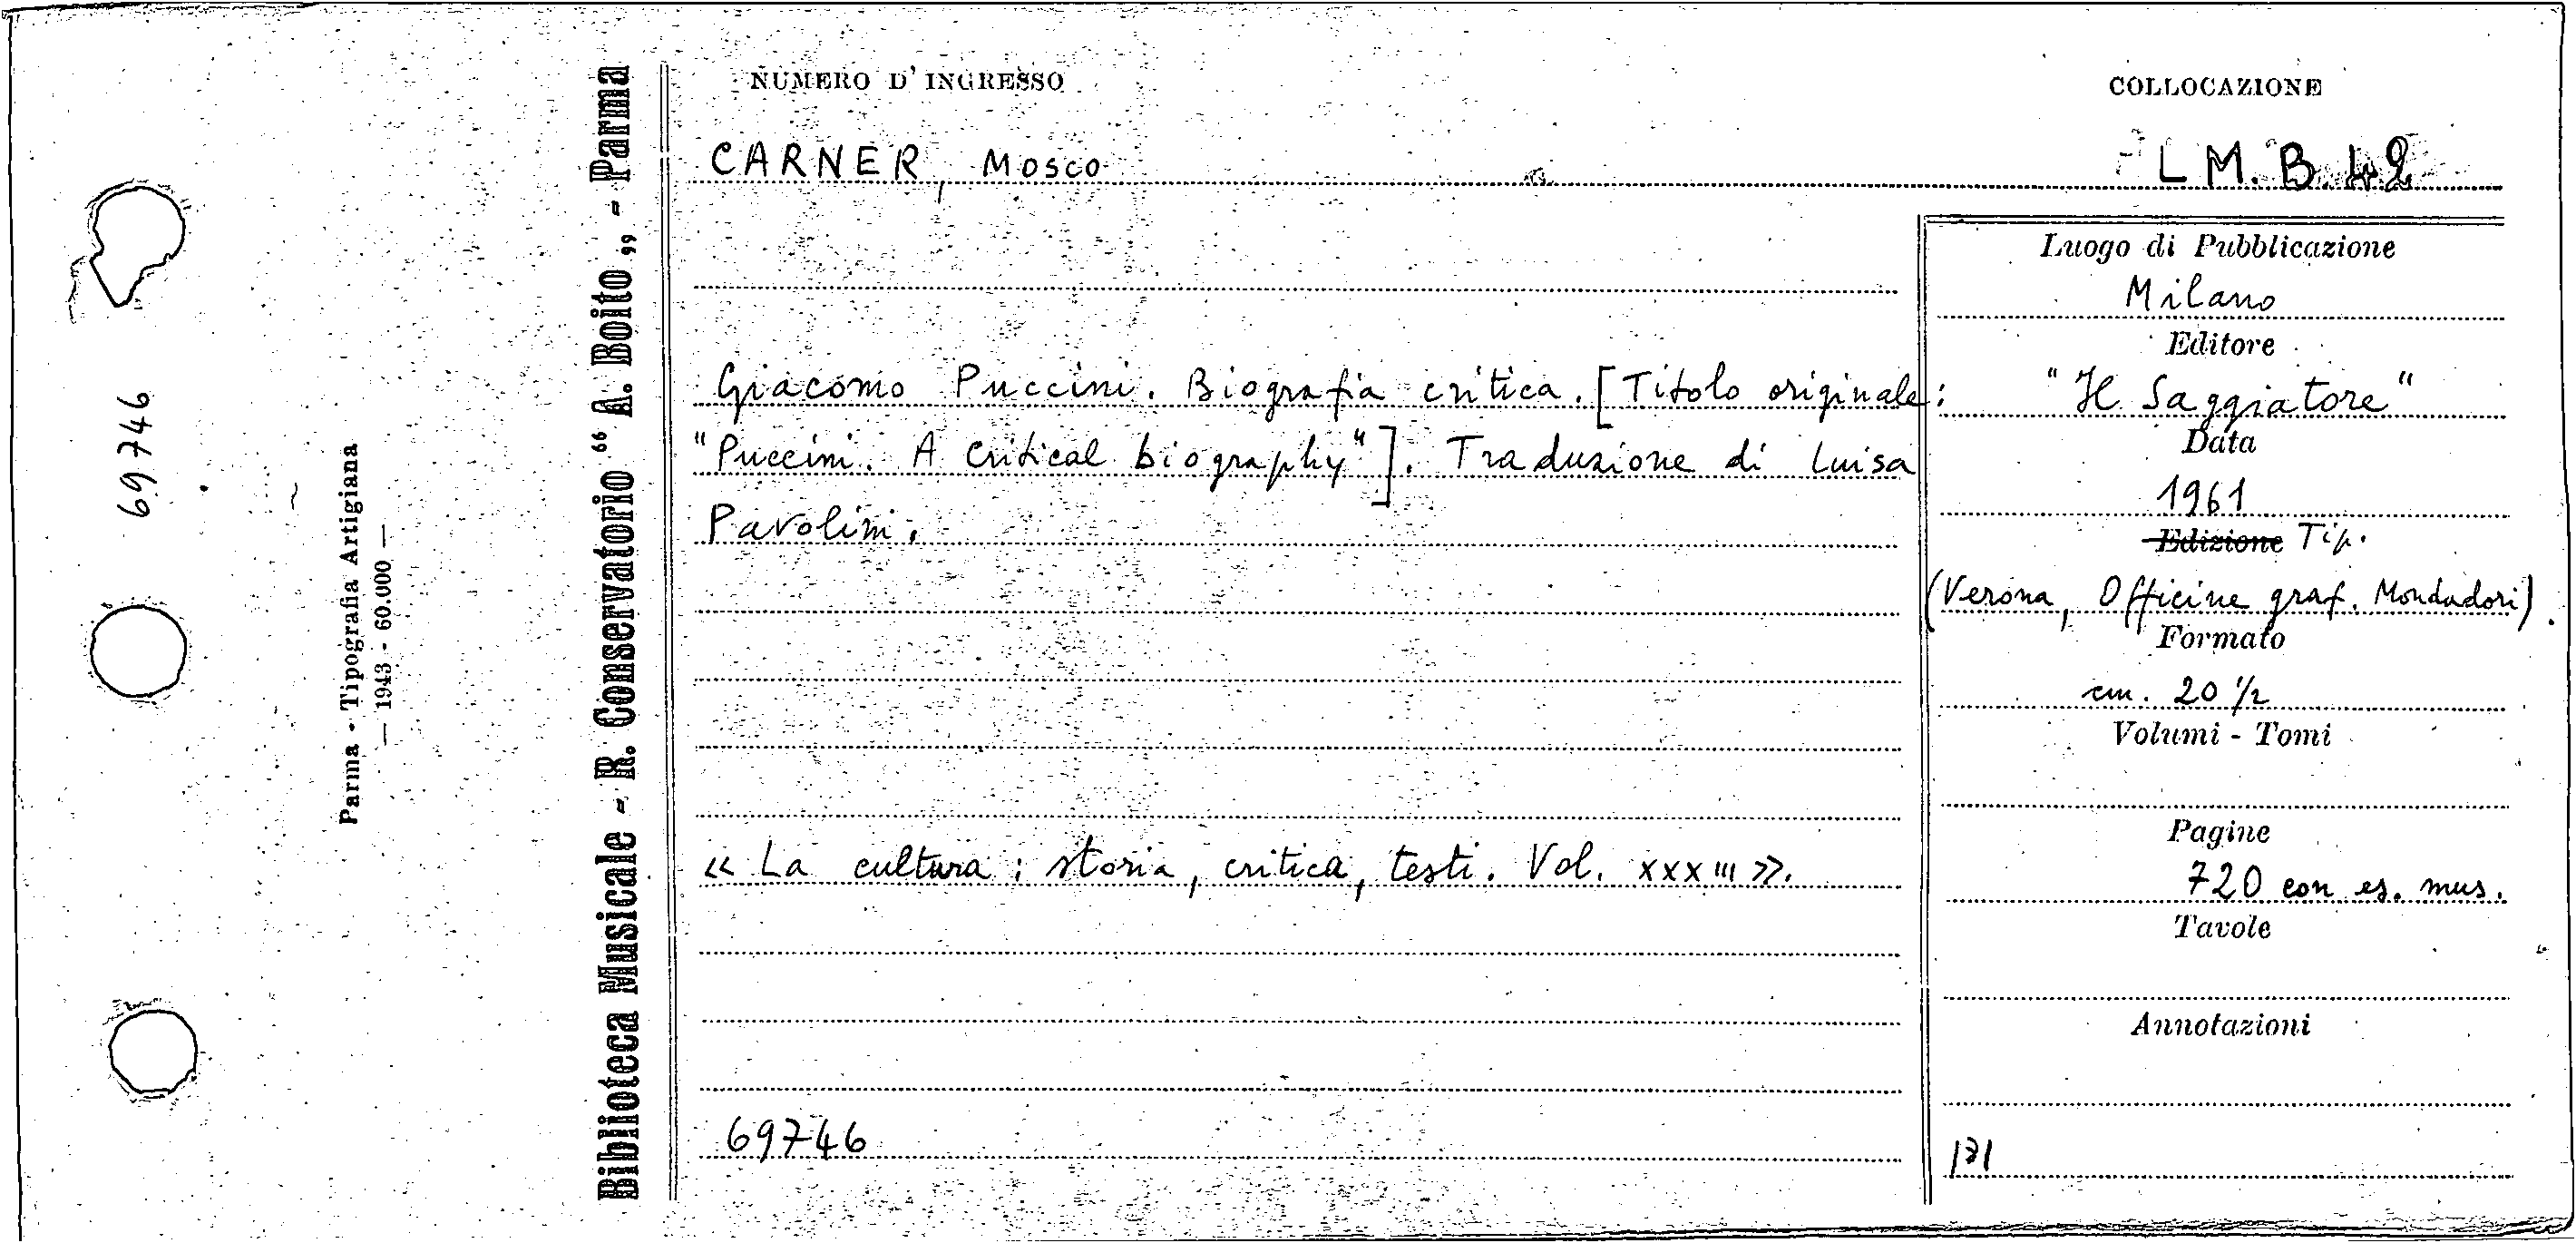 NUMERO D'INGRESSO
COLLOCAZIONE
CARNER, Mosco
LM.B.42
Giacomo Puccini. Biografia critica. [Titolo originale:
"Puccini. A critical biography"]. Traduzione di Luisa
Pavolini.
« La cultura: storia, critica, testi. Vol. XXXIII ».
69746
Luogo di Pubblicazione
Milano
Editore
"Il Saggiatore"
Data
1961
Edizione Tip.
(Verona, Officine graf. Mondadori).
Formato
cm. 20 1/2
Volumi - Tomi
Pagine
720 con es. mus.
Tavole
Annotazioni
Biblioteca Musicale - R. Conservatorio “ A. Boito „ - Parma
Parma - Tipografia Artigiana
— 1943 - 60.000 —
69746